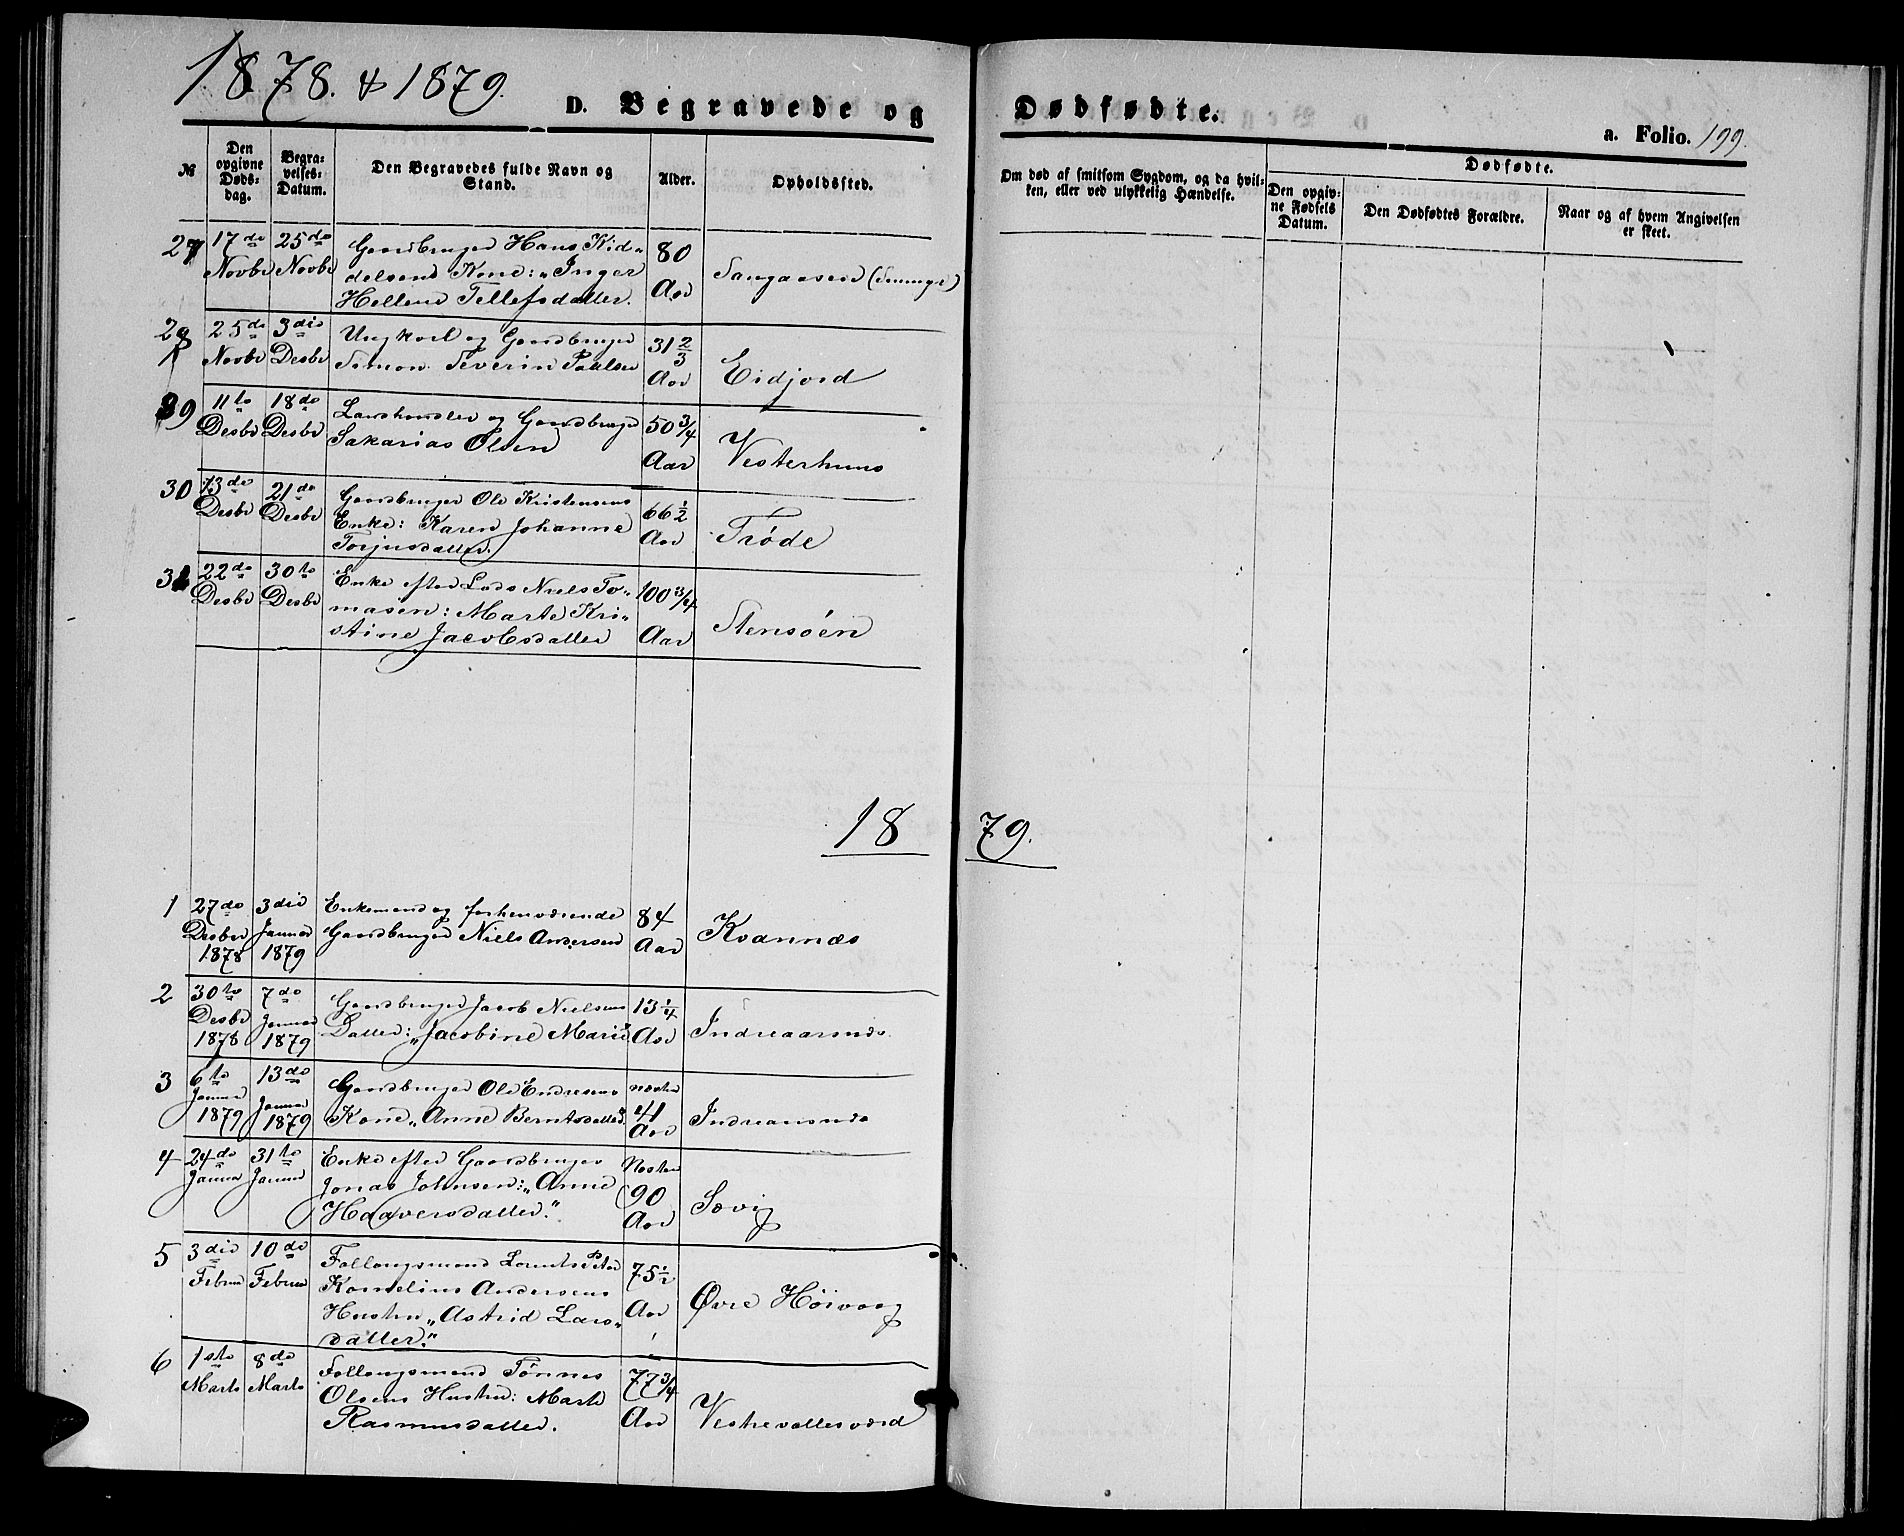 1878. & 1879.
D. Begravede og Dødfødte.
a. Folio. 199.
№
Den opgivne Dødsdag.
Begravelses-Datum.
Den Begravedes fulde Navn og Stand.
Alder.
Opholdssted.
Om død af smitsom Sygdom, og da hvilken, eller ved ulykkelig Hændelse.
Dødfødte.
Den opgivne Fødsels Datum.
Den Dødfødtes Forældre.
Naar og af hvem Angivelsen er skeet.
27 17de 25de Gaardbruger Hans Kid- 80
Novbr Novbr delsens Kone: "Inger Aar
Hellene Tellefsdatter.
28 25de 3die Ungkarl og Gaardbruger 31 2/3
Novbr Desbr Simon Severin Paulsen Aar Eidjord
29 11te 18de Landhandler og Gaardbruger 50 3/4
Desbr Desbr Sakarias Olsen Aar Vesterhuus
30 13de 21de Gaardbruger Ole Kristensens 66 1/2
Desbr Desbr Enke: Karen Johanne Aar Trøde
Torjusdatter.
31 22de 30te Enke efter Lods Niels To- 100 3/4
Desbr Desbr masen: Marte Kri- Stensøen
stine Jacobsdatter Aar
1879.
1 27de 3die Enkemand og forhenværende 84
Desbr Januar Gaardbruger Niels Andersen Aar Kvannæs
1878 1879
2 30te 7de Gaardbruger Jacob Nielsens 13 1/4
Desbr Januar Datter: "Jacobine Marie" Aar Indreaarsnæs
1878 1879
3 6te 13de Gaardbruger Ole Endresens næsten
Januar Januar Kone "Anne Berntsdatter" 41 Indreaarsnæs
1879 1879 Aar
4 24de 31te Enke efter Gaardbruger Næsten
Januar Januar Jonas Johnsen: "Anne 90 Søvig
Haaversdatter." Aar
5 3die 10de Follaugsmand Lornts Peter 75 1/2
Februar Februar Kornelius Andersens Øvre Höivaag
Hustru "Astrid Lars- Aar
datter."
6 1ste 8de Follaugsmand Tønnes 77 3/4
Marts Marts Olsens Hustru: Marte Aar Vestrevallesværd
Rasmusdatter.